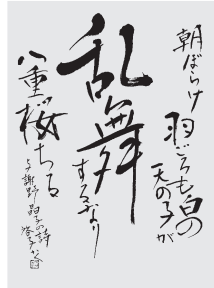 朝ぼらけ
羽ごろも白の
天の子が
乱舞
するなり
八重桜ちる
与謝野晶子の詩